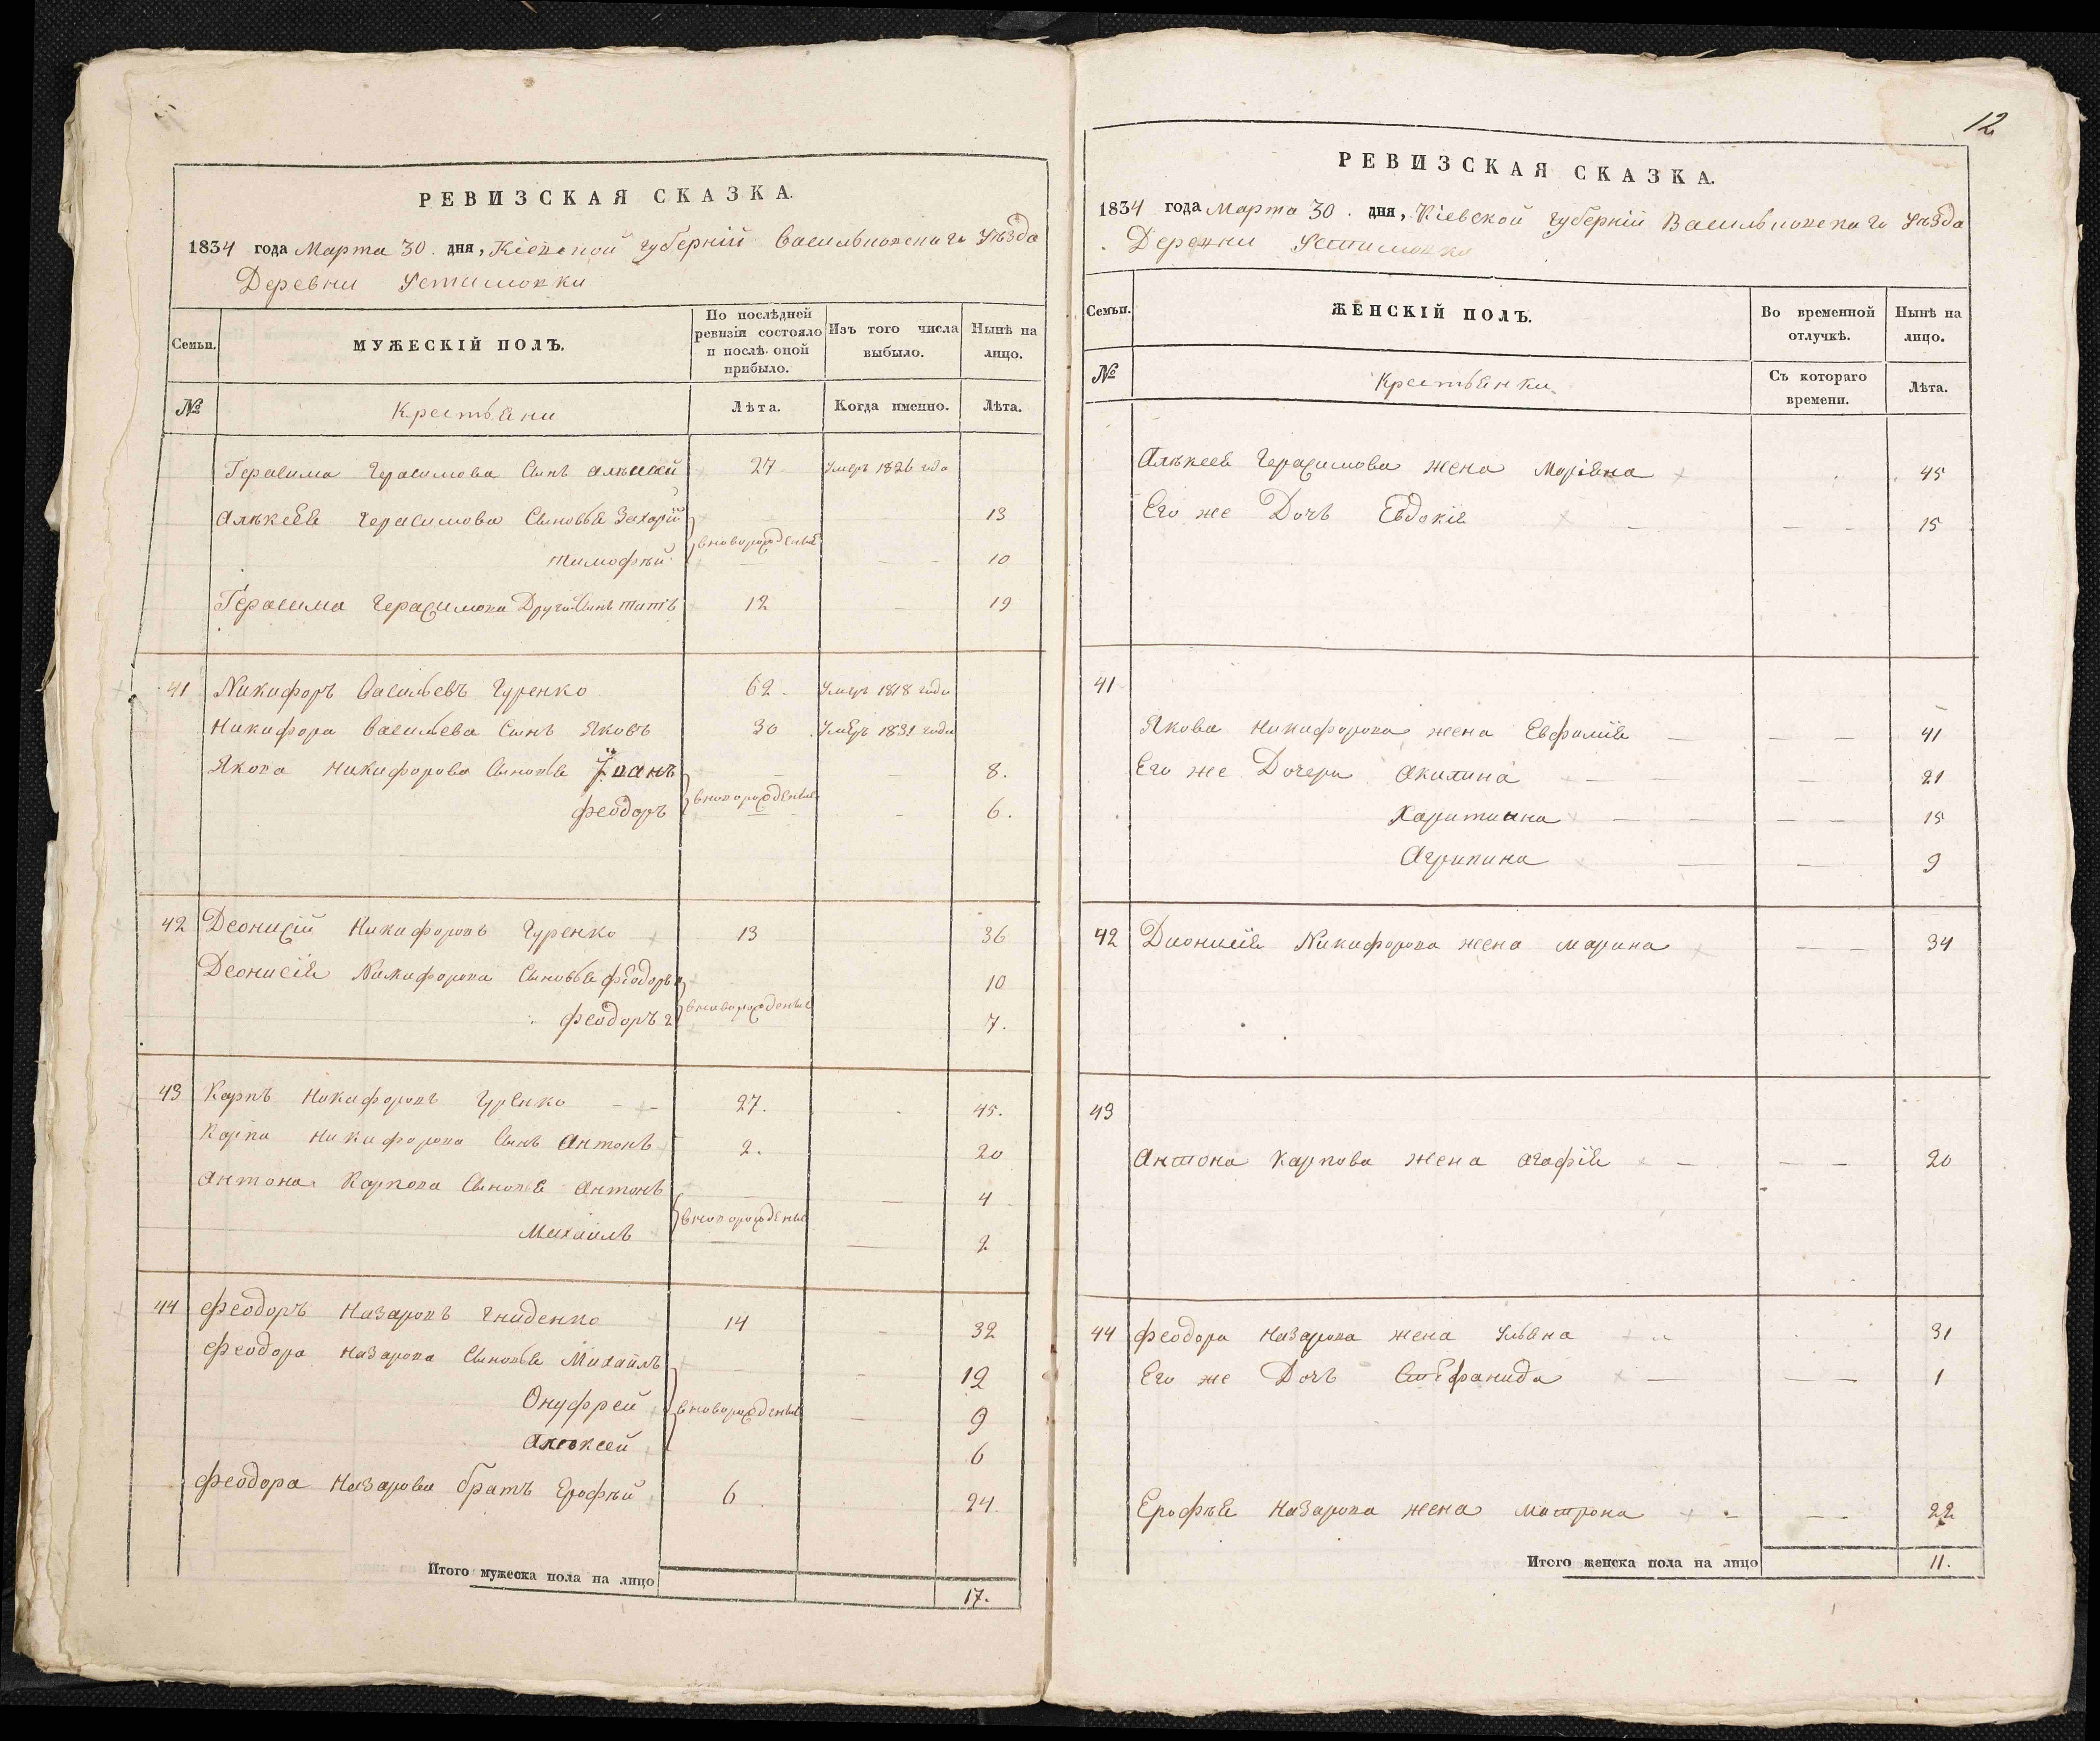 РЕВИЗСКАЯ СКАЗКА.
1834 года Марта 30. дня, Кіевской губерніи Васильковскаго Уѣзда
Деревни Устимовки
Семьи.
МУЖЕСКІЙ ПОЛЪ.
По послѣдней ревизіи состояло и послѣ оной прибыло.
Изъ того числа выбыло.
Нынѣ на лицо.
№
Крестьяни
Лѣта.
Когда именно.
Лѣта.
Герасима Герасимова Сынъ Алѣксѣй 27 Умеръ 1826 года
Алѣксѣя Герасимова Сыновья Захарій 13
вноворожденные
Тимофѣй 10
Герасима Герасимова Другой Сынъ Титъ 12 19
41 Никифоръ Васильевъ Гуренко 62. Умеръ 1818 года
Никифора Васильева Сынъ Яковъ 30 Умеръ 1831 года
Якова Никифорова Сыновья Іванъ 8.
вноворожденные
Феодоръ 6.
42 Деонисій Никифоровъ Гуренко 13 36
Деонисія Никифорова Сыновья Феодоръ 10
вноворожденные
Феодоръ 2 7.
43 Карпъ Никифоровъ Гуренко 27. 45.
Карпа Никифорова Сынъ Антонъ 2. 20
Антона Карпова Сыновья Антонъ 4
вноворожденные
Михаилъ 2
44 Феодоръ Назаровъ Гниденко 14 32
Феодора Назарова Сыновья Михаилъ 12
Онуфрей вноворожденные 9
Алѣксѣй 6
Феодора Назарова братъ Ерофѣй 6 24
Итого мужеска пола на лицо
17.
12
РЕВИЗСКАЯ СКАЗКА.
1834 года Марта 30. дня, Кіевской губерніи Васильковскаго Уѣзда
Деревни Устимовки
Семьи.
ЖЕНСКІЙ ПОЛЪ.
Во временной отлучкѣ.
Нынѣ на лицо.
№
Крестьянки
Съ котораго времени.
Лѣта.
Алѣксея Герасимова жена Маріяна 45
Его же Дочь Евдокія 15
41
Якова Никифорова жена Евфимія 41
Его же Дочери Акилина 21
Харитина 15
Агрипина 9
42 Дионисія Никифорова жена Марина 34
43
Антона Карпова жена Агафія 20
44 Феодора Назарова жена Ульяна 31
Его же Дочь Стефанида 1
Ерофѣя Назарова жена Матрона 22
Итого женска пола на лицо
11.